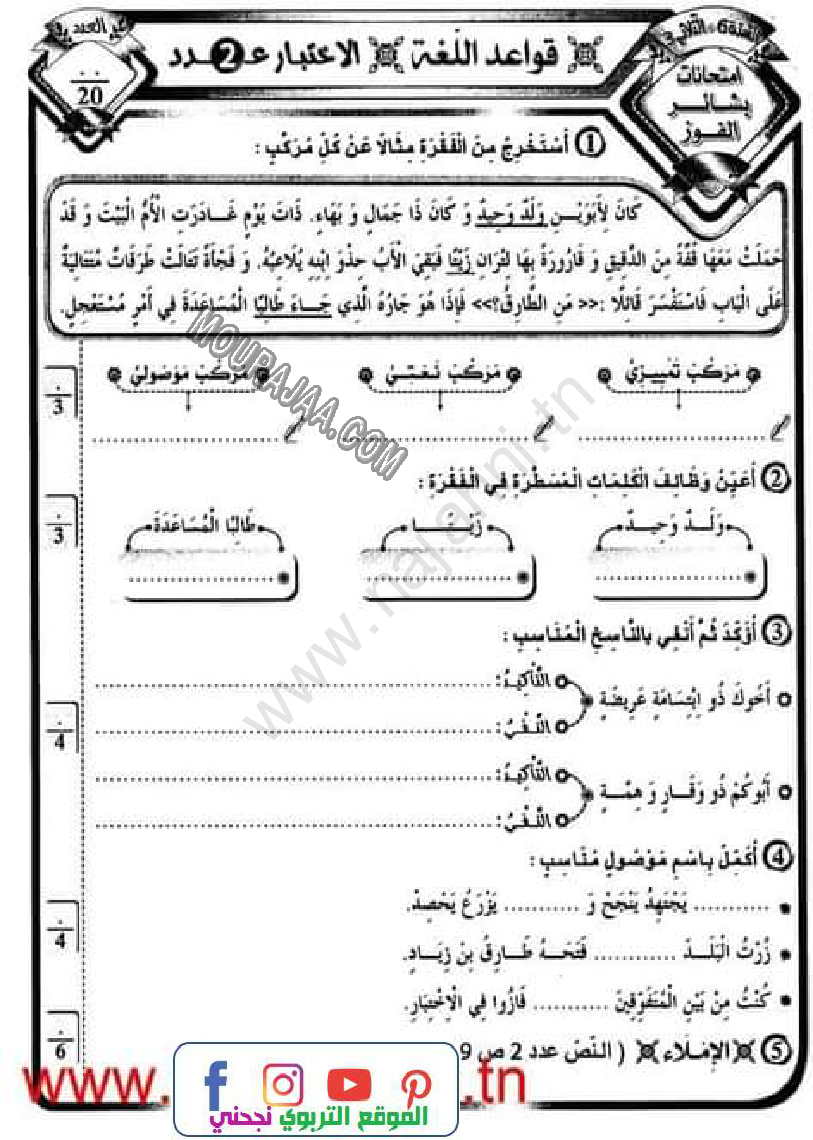 قواعد اللّغة الاختبار عـ2ـدد
امتحانات
بشائر
الفوز
20
① أَسْتَخْرِجُ مِنَ الْفَقْرَةِ مِثَالًا عَنْ كُلِّ مُرَكَّبٍ :
كَانَ لِأَبَوَيْـنِ وَلَدٌ وَحِيدٌ وَ كَانَ ذَا جَمَالٍ وَ بَهَاءٍ. ذَاتَ يَوْمٍ غَـادَرَتِ الْأُمُّ الْبَيْتَ وَ قَدْ
حَمَلَتْ مَعَهَا قُفَّةً مِنَ الدَّقِيقِ وَ قَارُورَةً بِهَا لِتْرَانِ زَيْتًا فَبَقِيَ الْأَبُ حِذْوَ ابْنِهِ يُلَاعِبُهُ. وَ فَجْأَةً تَتَالَتْ طَرَقَاتٌ مُتَتَالِيَةٌ
عَلَى الْبَابِ فَاسْتَفْسَرَ قَائِلًا :<< مَنِ الطَّارِقُ؟>> فَإِذَا هُوَ جَارُهُ الَّذِي جَـاءَ طَالِبًا الْمُسَاعَدَةَ فِي أَمْرٍ مُسْتَعْجِلٍ.
مُرَكَّبٌ تَمْيِيـزِيٌّ مُرَكَّبٌ نَـعْـتِـيٌّ مُرَكَّبٌ مَوْصُولِيٌّ
3
② أُعَيِّنُ وَظَائِفَ الْكَلِمَاتِ الْمُسَطَّرَةِ فِي الْفَقْرَةِ :
وَلَـدٌ وَحِيـدٌ زَيْـتًـا طَالِبًا الْمُسَاعَدَةَ
3
③ أُؤَكِّدُ ثُمَّ أَنْفِي بِالنَّاسِخِ الْمُنَاسِبِ :
التَّأْكِيدُ : ........
أَخُوكَ ذُو اِبْتِسَامَةٍ عَرِيضَةٍ
النَّـفْـيُ : ........
4
التَّأْكِيدُ : ........
أَبُوكُمْ ذُو وَقَـارٍ وَ هِمَّـةٍ
النَّـفْـيُ : ........
④ أُكْمِلُ بِاسْمِ مَوْصُولٍ مُنَاسِبٍ :
........... يَجْتَهِدُ يَنْجَحُ وَ ........... يَزْرَعُ يَحْصِدُ.
4
زُرْتُ الْبَلَـدَ ............ فَتَحَـهُ طَـارِقُ بِنُ زِيَـادٍ.
كُنْتُ مِنْ بَيْنِ الْمُتَفَوِّقِينَ ........... فَازُوا فِي الْاِخْتِبَارِ.
⑤ الإمْلَاء ( النّصّ عدد 2 ص 9
6
MOURAJAA.COM
www.najahni.tn
www. .tn
الموقع التربوي نجحني